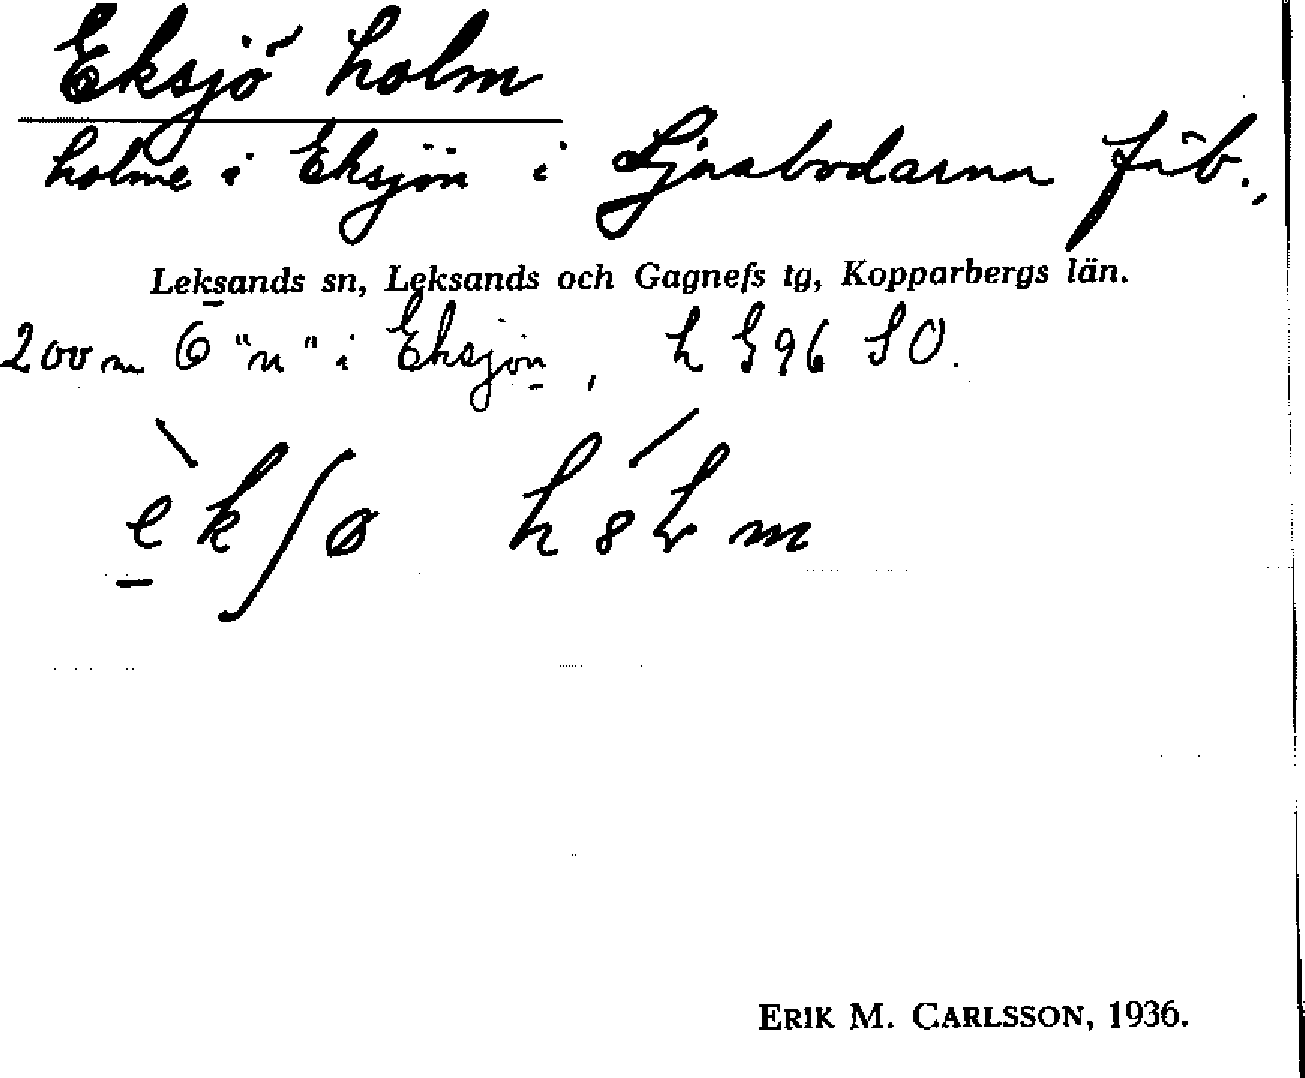 Eksjö holm
holme i Eksjön i Ljusbodarna fäb.,
Leksands sn, Leksands och Gagnefs tg, Kopparbergs län.
200 m Ö "n" i Eksjön, h 96 SO.
ekʃø hɷɫm
ERIK M. CARLSSON, 1936.